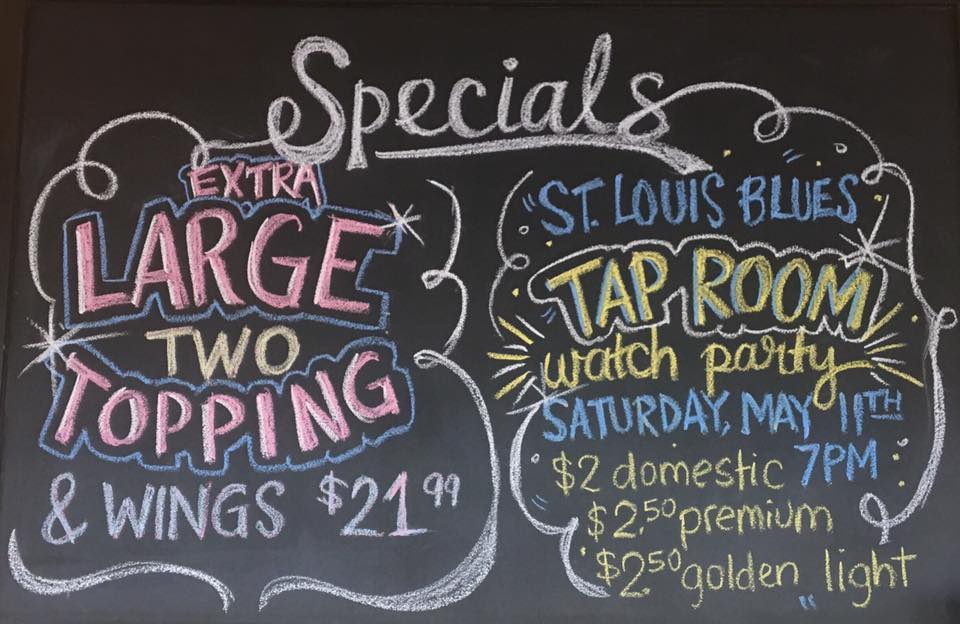 Specials
EXTRA
LARGE
TWO
TOPPING
& WINGS $21.99
ST. LOUIS BLUES
TAP ROOM
watch party
SATURDAY, MAY 11TH
7PM
$2 domestic
$2.50 premium
$2.50 golden light